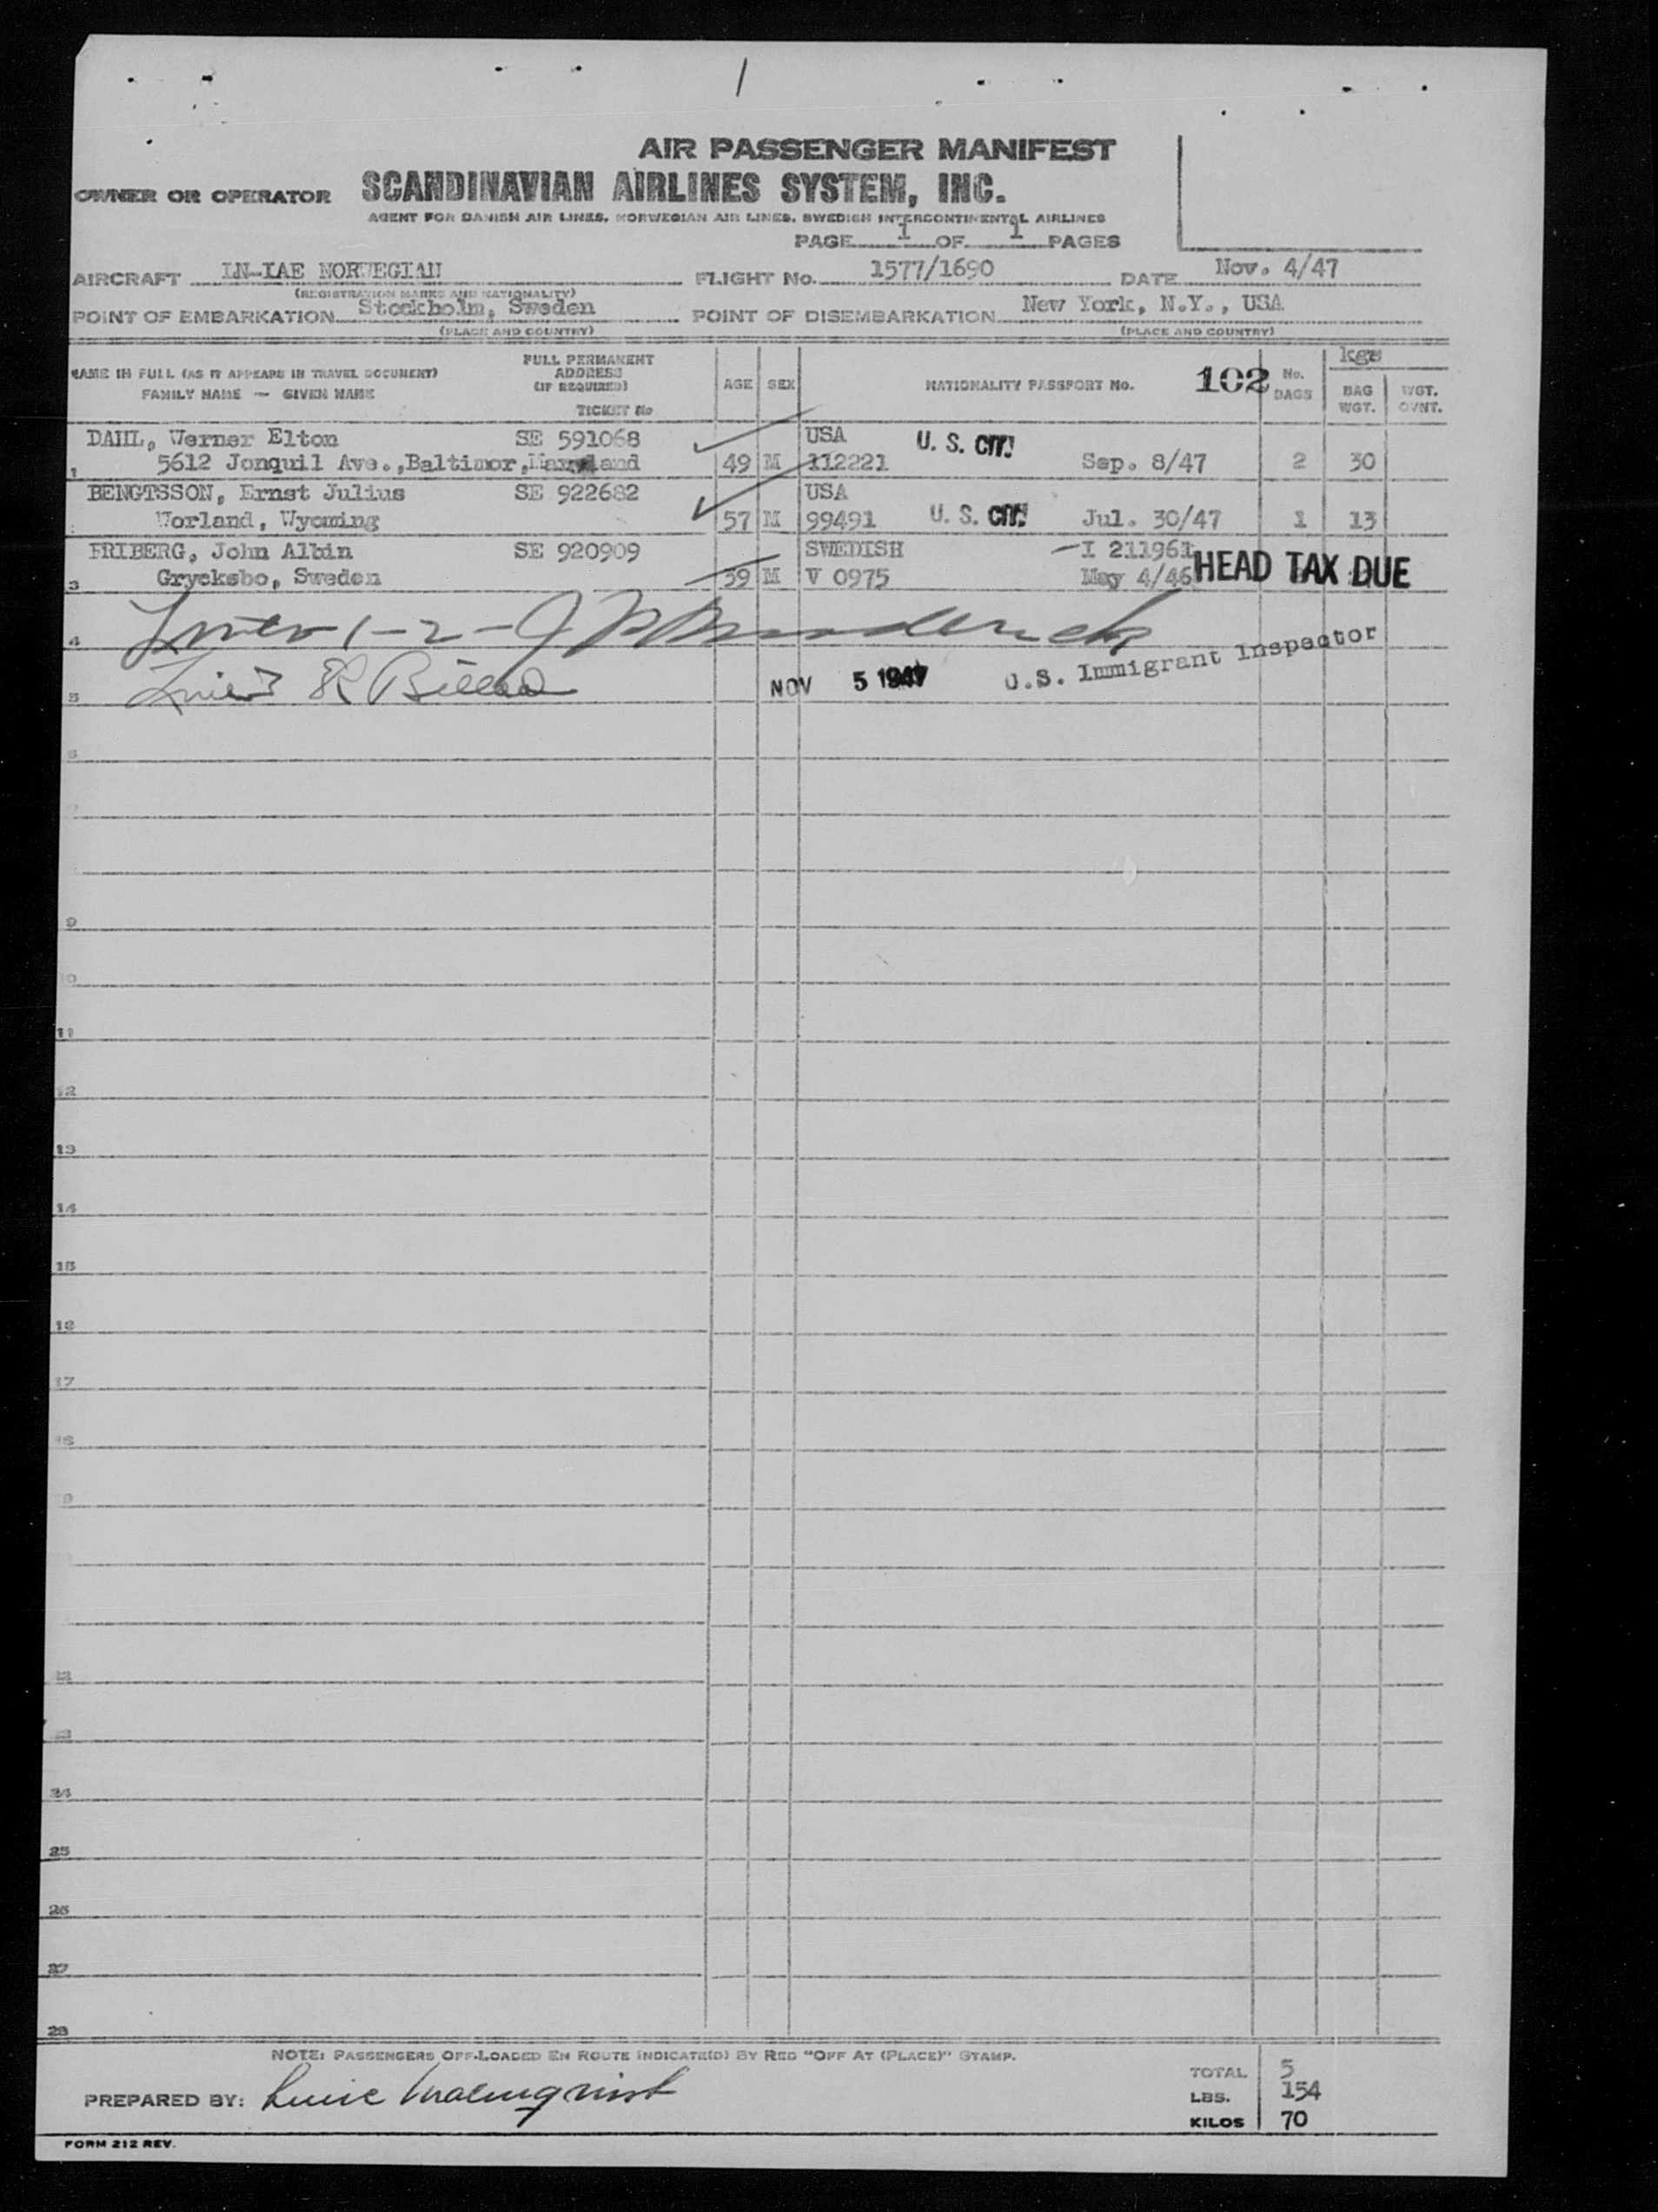 AIR PASSENGER MANIFEST
OWNER OR OPERATOR SCANDINAVIAN AIRLINES SYSTEM, INC.
AGENT FOR DANISH AIR LINES, NORWEGIAN AIR LINES, SWEDISH INTERCONTINENTAL AIRLINES
PAGE 1 OF 1 PAGES
AIRCRAFT LN-IAE NORWEGIAN FLIGHT No. 1577/1690 DATE Nov. 4/47
(REGISTRATION MARKS AND NATIONALITY)
POINT OF EMBARKATION Stockholm, Sweden POINT OF DISEMBARKATION New York, N.Y., USA
(PLACE AND COUNTRY) (PLACE AND COUNTRY)
NAME IN FULL (AS IT APPEARS IN TRAVEL DOCUMENT)
FAMILY NAME — GIVEN NAME
FULL PERMANENT
ADDRESS
(IF REQUIRED)
TICKET No
AGE SEX NATIONALITY PASSPORT No. 102 No. BAGS kgs BAG WGT. WGT. OVNT.
DAHL, Werner Elton SE 591068 USA U. S. CIT!
1 5612 Jonquil Ave.,Baltimor,Maryland 49 M 112221 Sep. 8/47 2 30
BENGTSSON, Ernst Julius SE 922682 USA
Worland, Wyoming 57 M 99491 U. S. CIT! Jul. 30/47 1 13
FRIBERG, John Albin SE 920909 SWEDISH I 211961
3 Grycksbo, Sweden 39 M V 0975 May 4/46 HEAD TAX DUE
4 1-2-
5 NOV 5 1947 U.S. Immigrant Inspector
6
9
10
11
12
13
14
15
16
17
18
19
22
23
24
25
26
27
28
NOTE: PASSENGERS OFF-LOADED EN ROUTE INDICATE(D) BY RED "OFF AT (PLACE)" STAMP.
TOTAL 5
PREPARED BY: Malmqvist
LBS. 154
KILOS 70
FORM 212 REV.